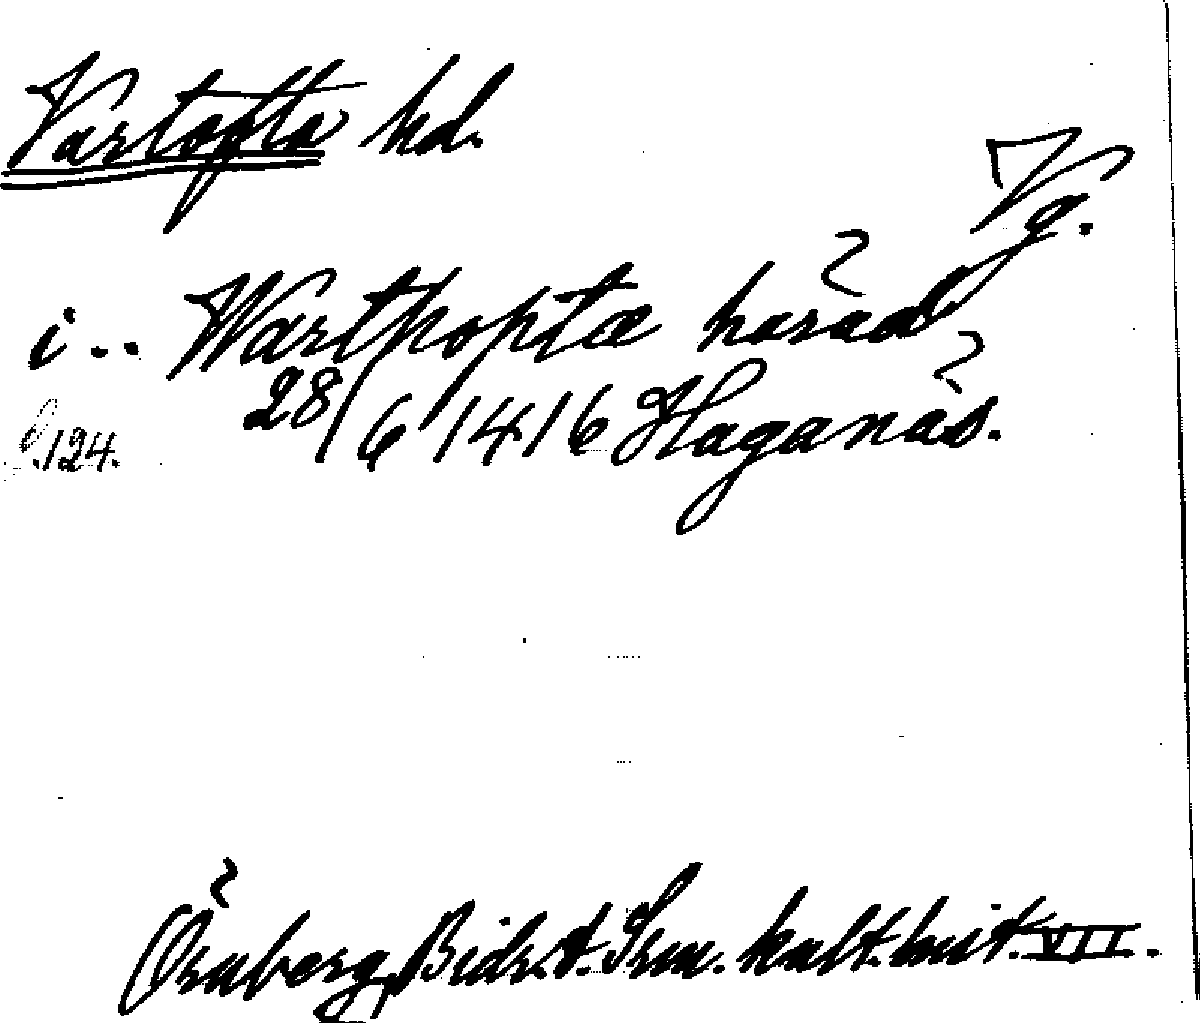 Vartofta hd.
Vg.
i.. Warthopta häräd
28/6 1416 Haganäs.
s. 124.
Örnberg, Bidr. t. Srm. kult. hist. VII.